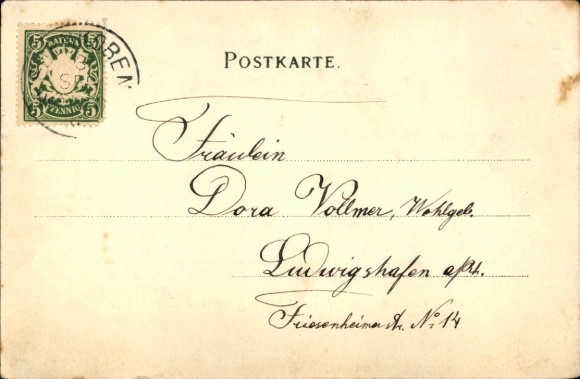 5 BAYERN 5
5 PFENNIG 5
POSTKARTE.
Fräulein
Dora Vollmer, Wohlgeb.
Ludwigshafen a/Rh.
Friesenheimerstr. No 14